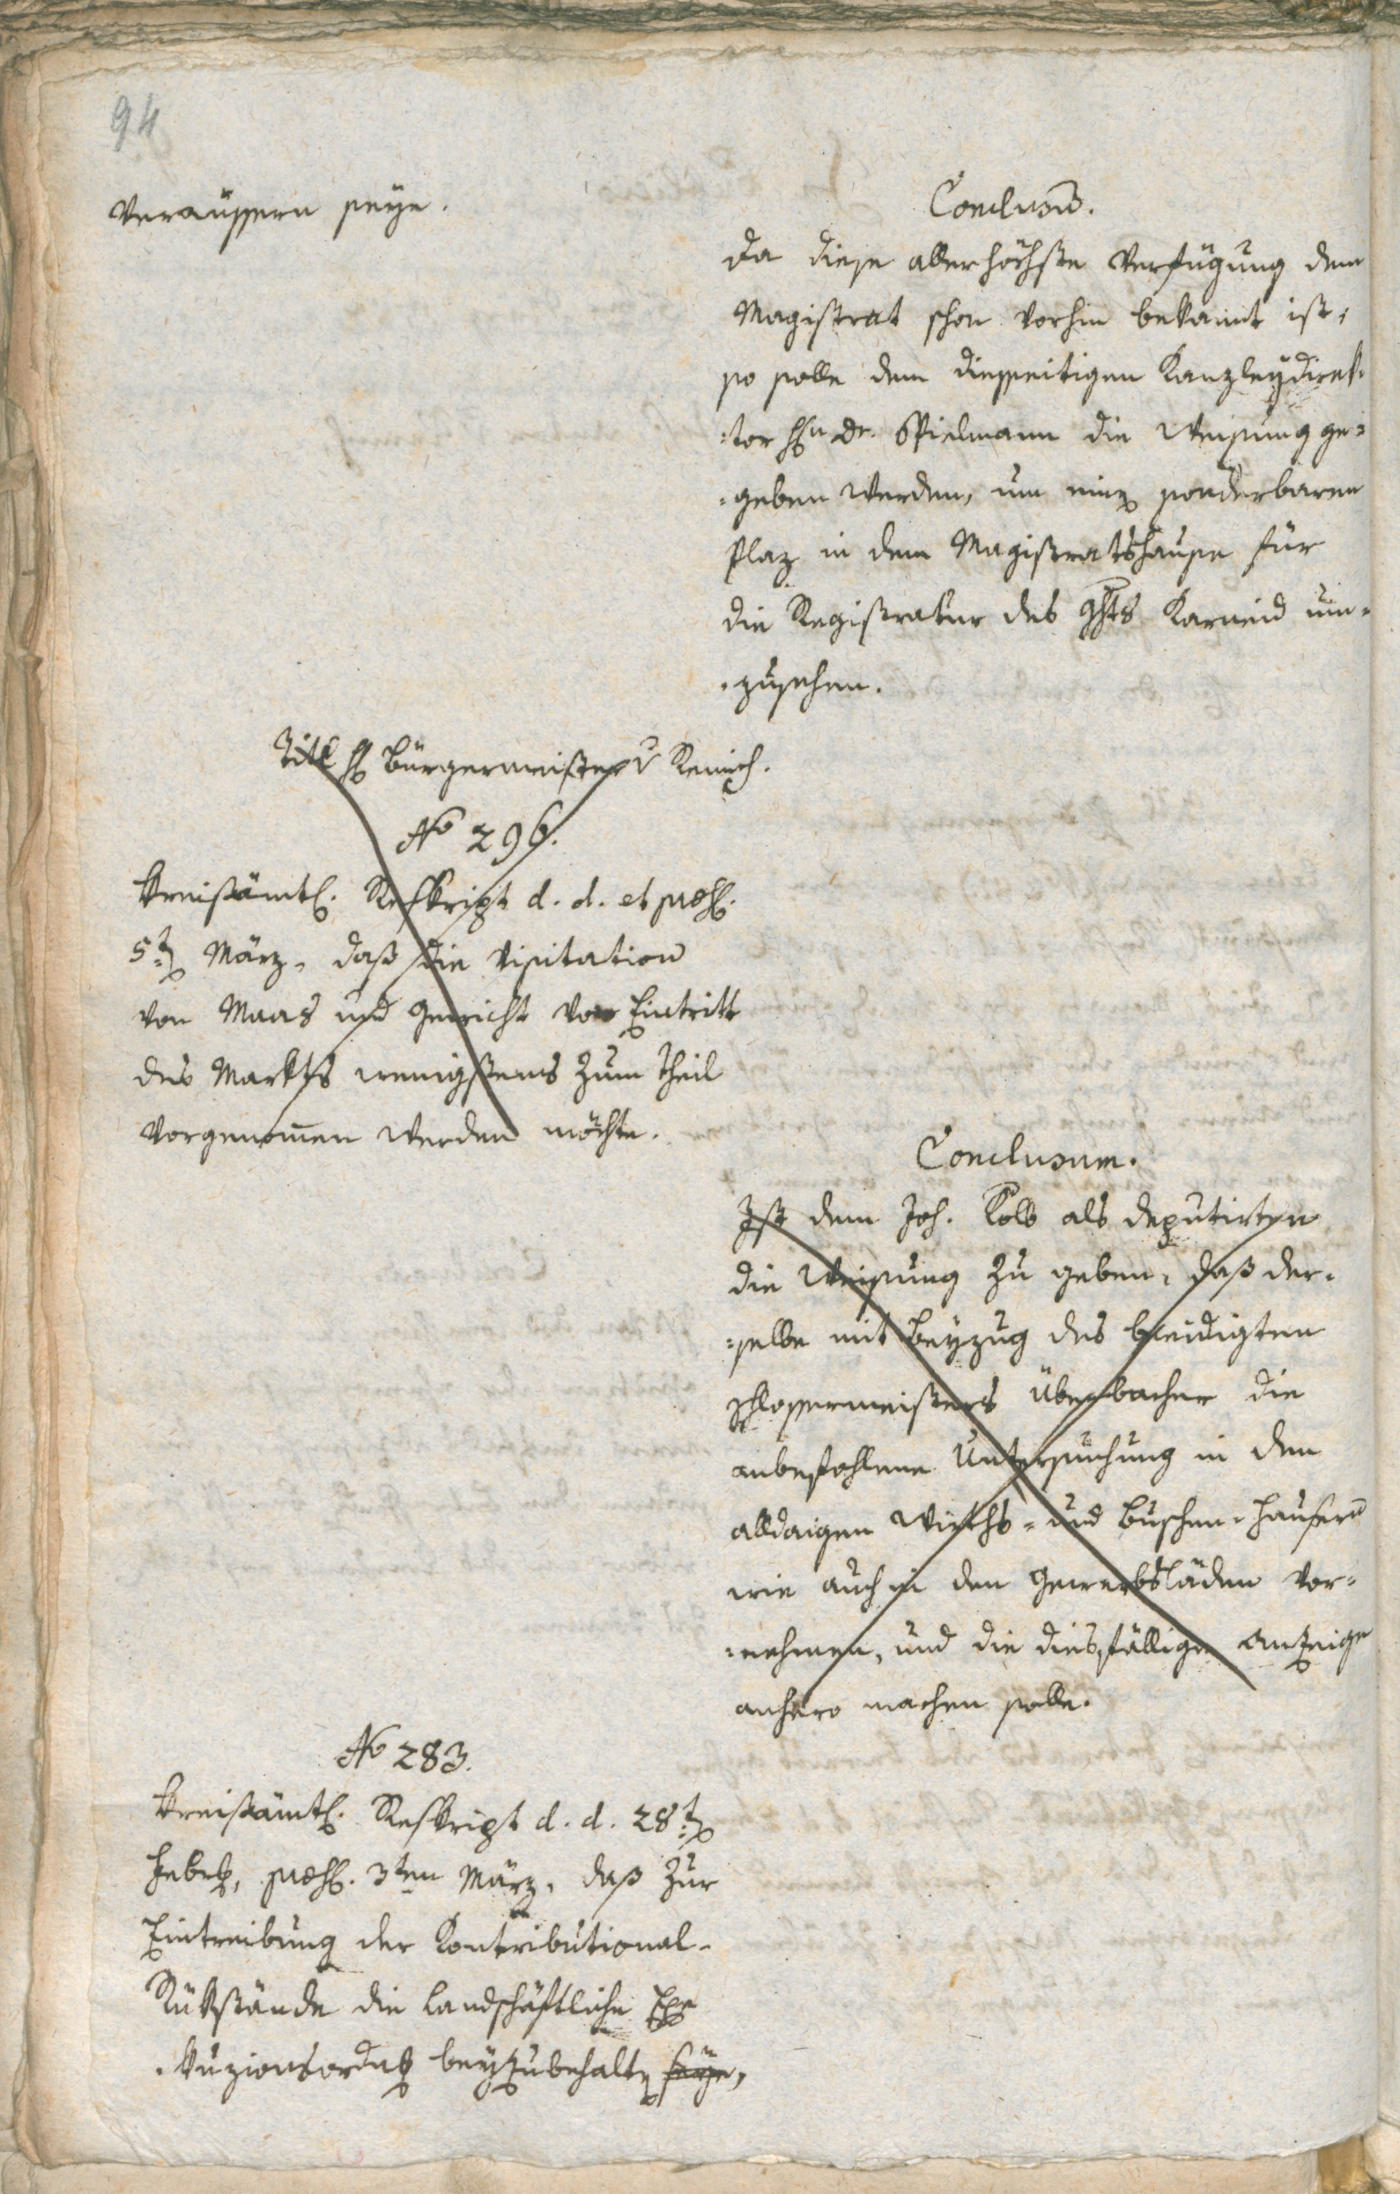 94
veräussern seye.
Conclusum.
Da diese allerhöchste Verfügung dem
Magistrat schon vorhin bekannt ist,
so solle dem diesseitigen Kanzleydirek-
:tor Hn Dr. Spielmann die Weisung ge=
=geben werden, um einen sonderbaren
Plaz in dem Magistratshause für
die Registratur des Ghts Karneid um=
=zusehen.
Titl H Bürgermeister v Remich.
No 296.
Kreisämtl. Reskript d. d. et præs.
5ten März, daß die Visitation
von Maas und Gewicht vor Eintritt
des Markts wenigstens zum Theil
vorgenommen werden möchte.
Conclusum.
Ist dem Joh. Kolb als deputirten
die Weisung zu geben, daß der=
=selbe mit Beyzug des beeidigten
Schlossermeisters Überbacher die
anbefohlene Untersuchung in den
alldaigen Wirths= und Buschen=Häusern
wie auch in den Gewerbsläden vor=
=nehmen, und die diesfällige Anzeige
anhero machen solle.
No 283.
Kreisämtl. Reskript d. d. 28ten
Febr, præs. 3ten März, daß zur
Eintreibung der Kontributional-
Rükstände die Landschäftliche Exe
=kuzionsordnung beyzubehalten seye,